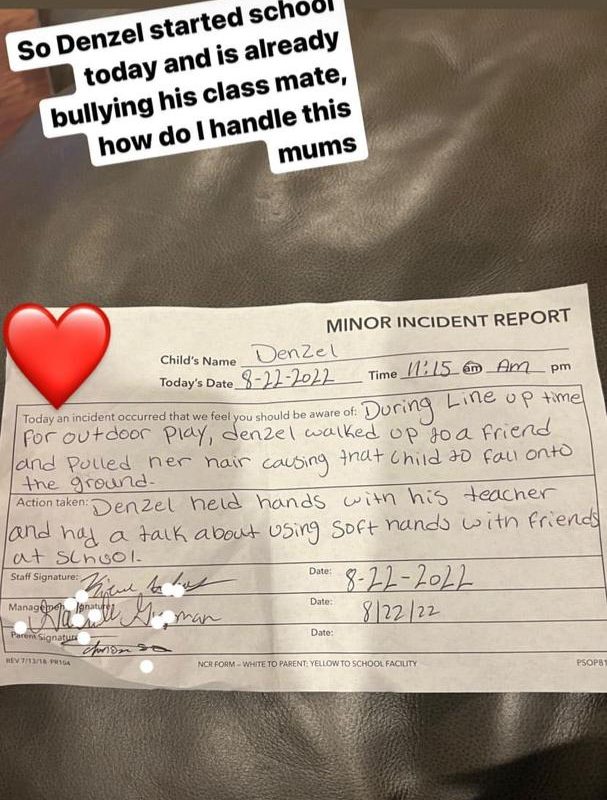 So Denzel started school
today and is already
bullying his class mate,
how do I handle this
mums
MINOR INCIDENT REPORT
Child's Name Denzel
Today's Date 8-22-2022 Time 11:15 am Am pm
Today an incident occurred that we feel you should be aware of: During Line up time
for outdoor play, denzel walked up to a friend
and pulled her hair causing that child to fall onto
the ground.
Action taken: Denzel held hands with his teacher
and had a talk about using soft hands with friends
at school.
Staff Signature: Date: 8-22-2022
Management Signature: Date: 8/22/22
Parent Signature Date:
REV 7/13/18-PR104 NCR FORM – WHITE TO PARENT; YELLOW TO SCHOOL FACILITY PSOP81